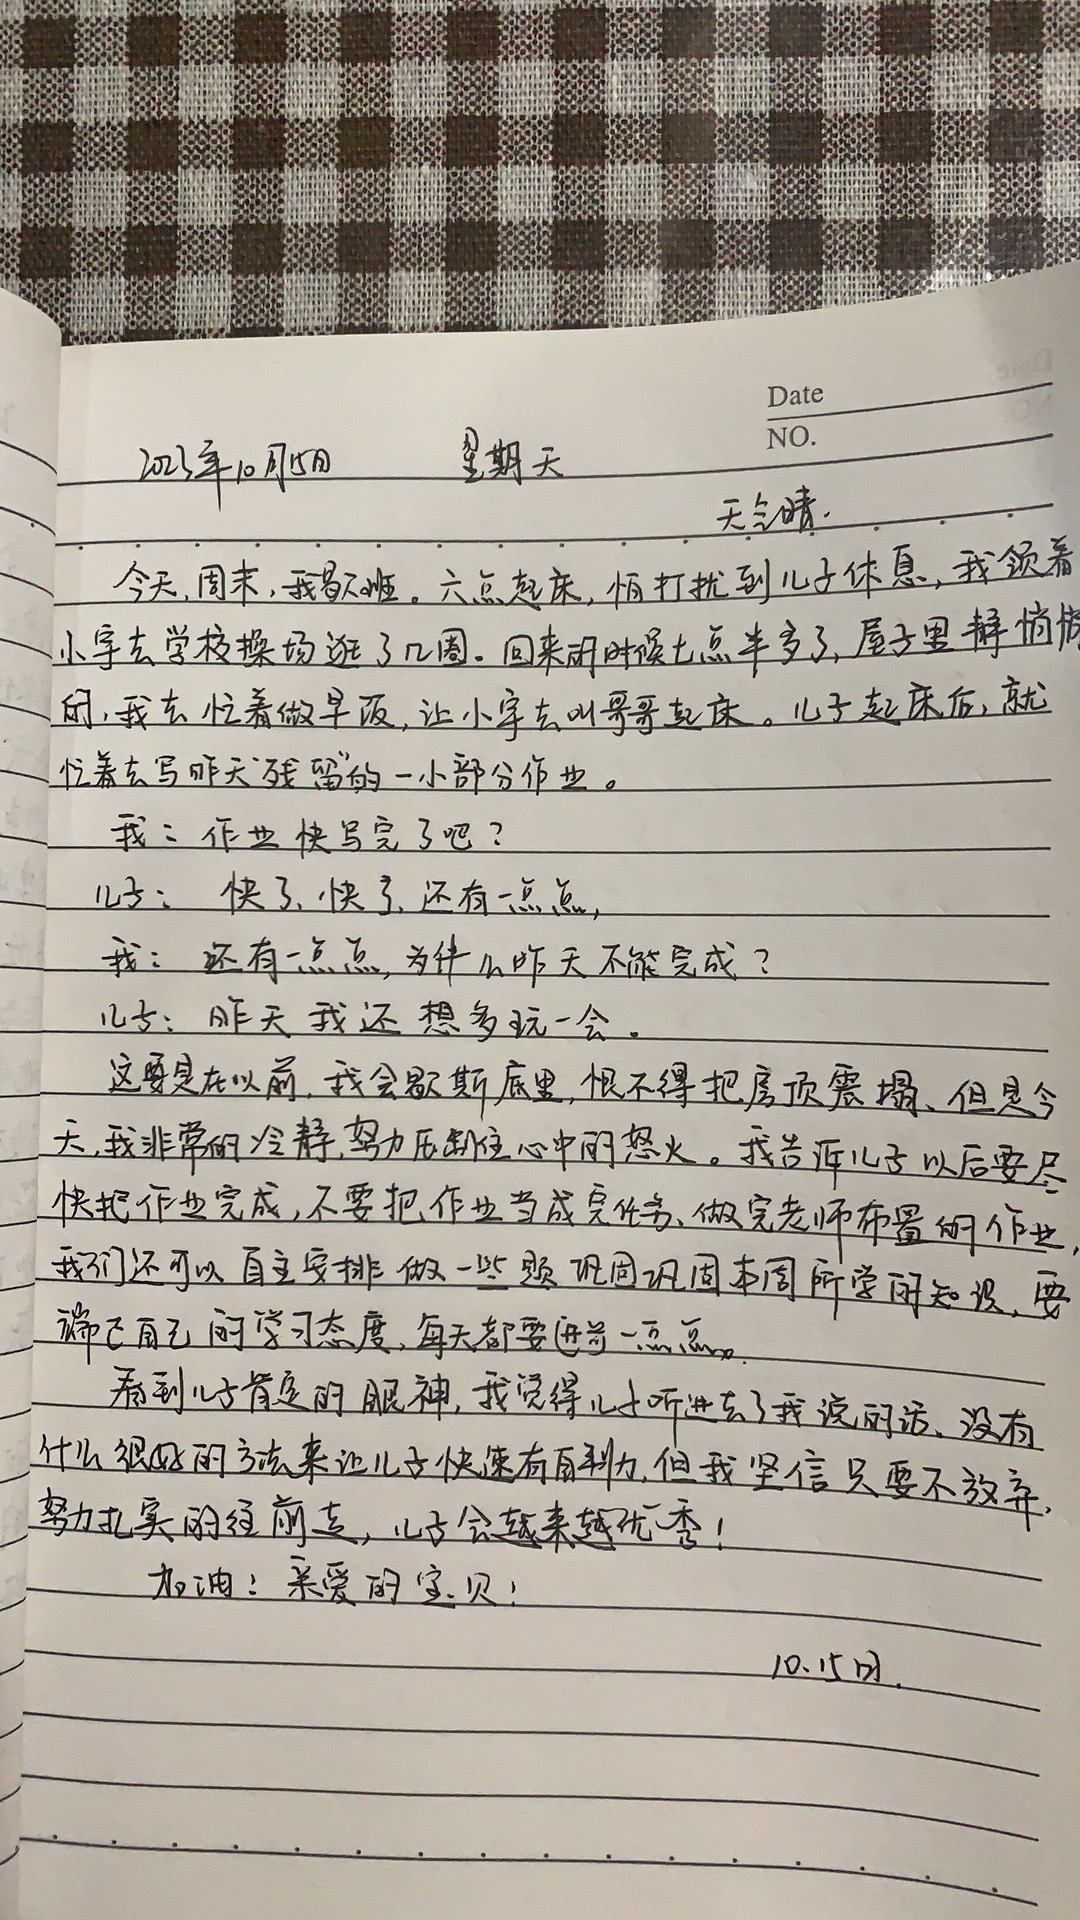 Date
NO.
2023年10月15日 星期天
天气晴.
今天,周末,我歇班。六点起床,怕打扰到儿子休息,我领着
小宇去学校操场逛了几圈。回来的时候七点半多了,屋子里静悄悄
的,我去忙着做早饭,让小宇去叫哥哥起床。儿子起床后,就
忙着去写昨天"残留"的一小部分作业。
我:作业快写完了吧?
儿子: 快了、快了、还有一点点,
我: 还有一点点,为什么昨天不能完成?
儿子: 昨天我还想多玩一会。
这要是在以前,我会歇斯底里,恨不得把房顶震塌、但是今
天,我非常的冷静,努力压制住心中的怒火。我告诉儿子以后要尽
快把作业完成,不要把作业当成完任务、做完老师布置的作业,
我们还可以自主安排做一些题巩固巩固本周所学的知识,要
端正自己的学习态度,每天都要进步一点点。
看到儿子肯定的眼神,我觉得儿子听进去了我说的话、没有
什么很好的方法来让儿子快速有自制力,但我坚信只要不放弃,
努力扎实的往前走,儿子会越来越优秀!
加油!亲爱的宝贝!
10.15日.